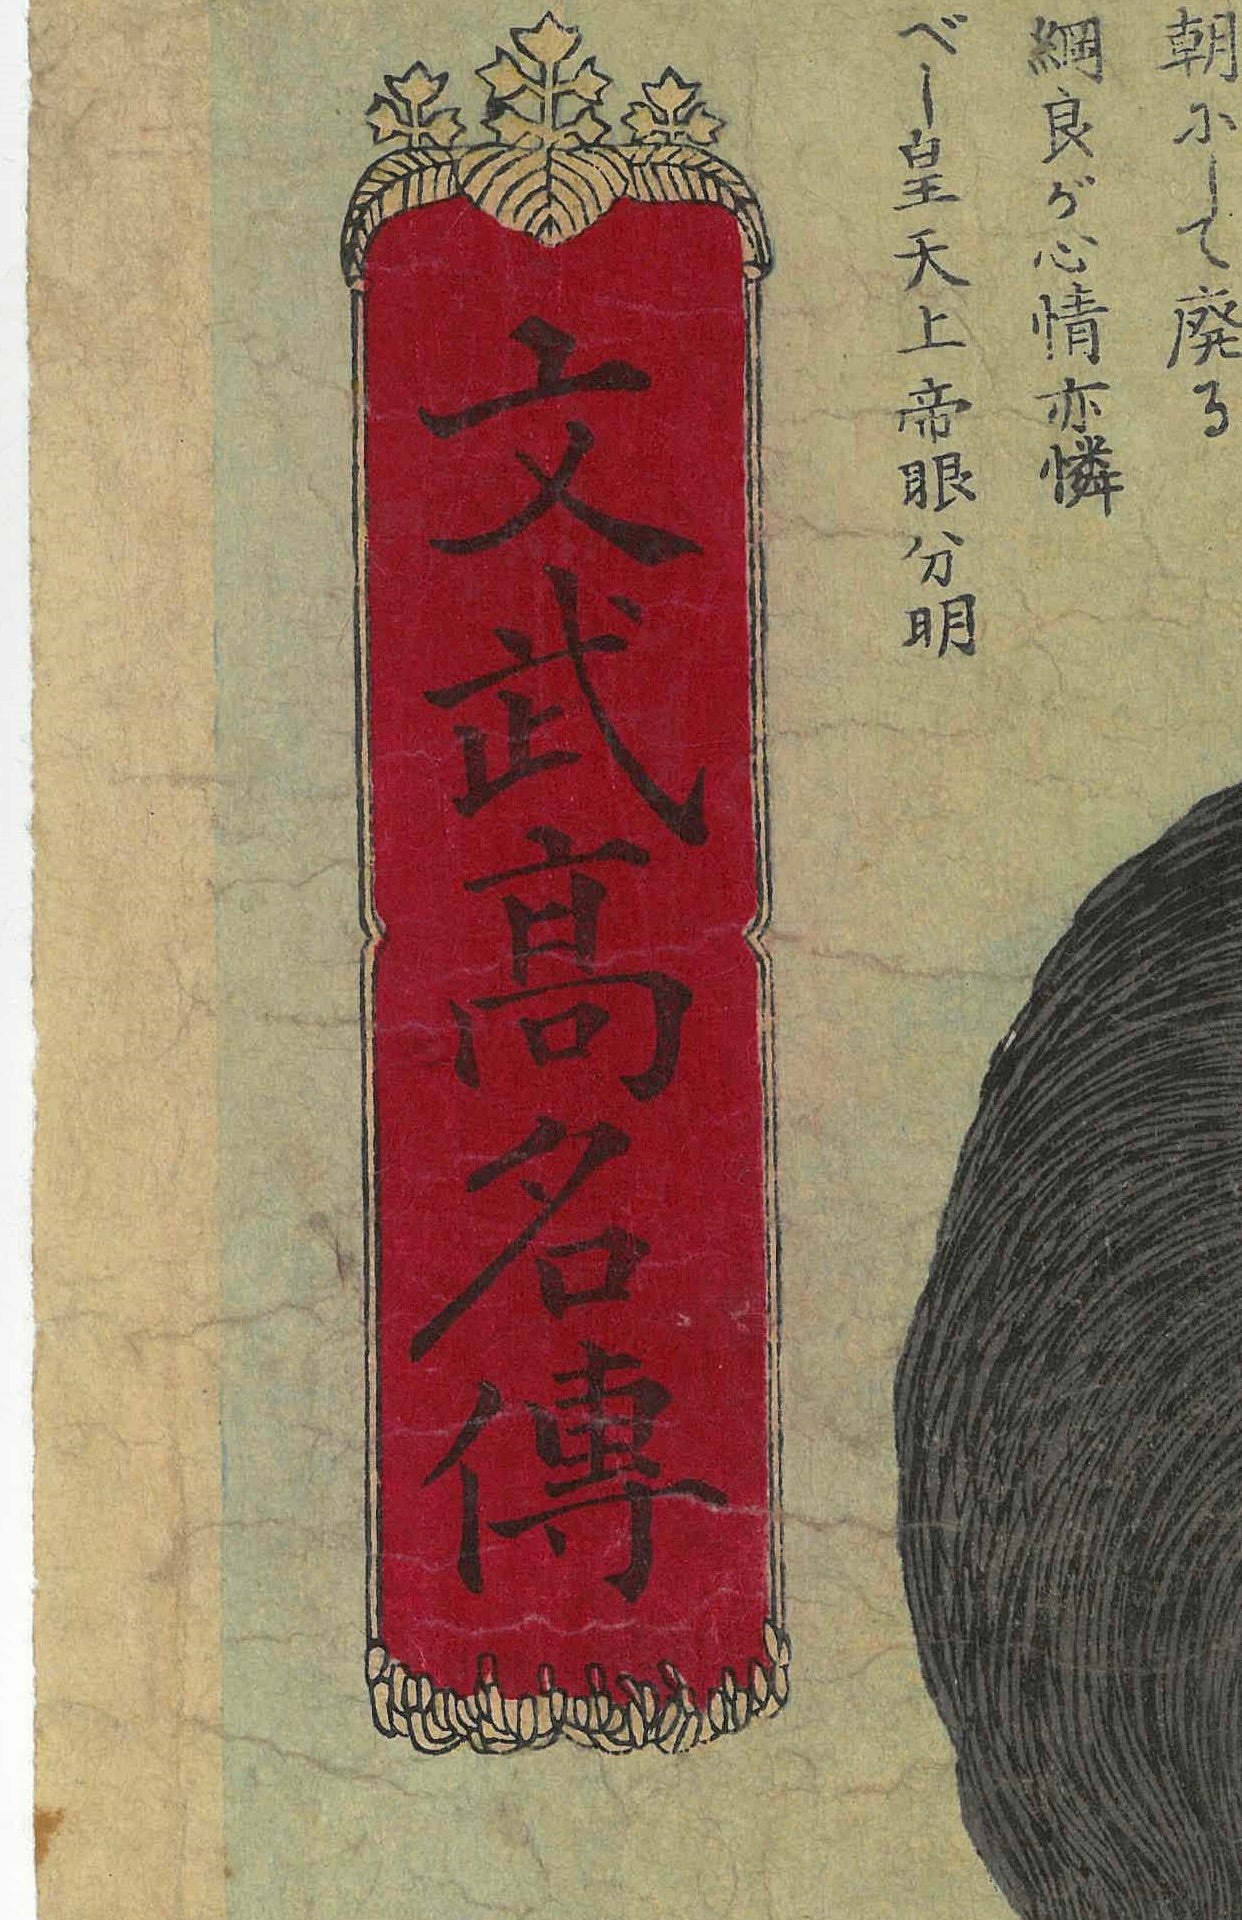 朝にして廃る
綱良が心情亦憐
べし皇天上帝眼分明
文武高名傳